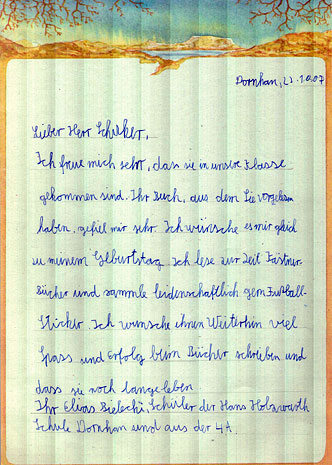 Dornhan, 21.10.07
Lieber Herr Schuker,
Ich freue mich sehr, dass sie in unsere Klasse
gekommen sind. Ihr Buch, aus dem Sie vorgelesen
haben, gefiel mir sehr. Ich wünsche es mir gleich
zu meinem Geburtstag. Ich lese zur Zeit Kästner
Bücher und sammle leidenschaftlich gern Fußball-
Sticker. Ich wünsche ihnen Weiterhin viel
Spass und Erfolg beim Bücher schreiben und
dass sie noch lange leben
Ihr Elias Bielecki, Schüler der Hans Holzwarth
Schule Dornhan und aus der 4A.